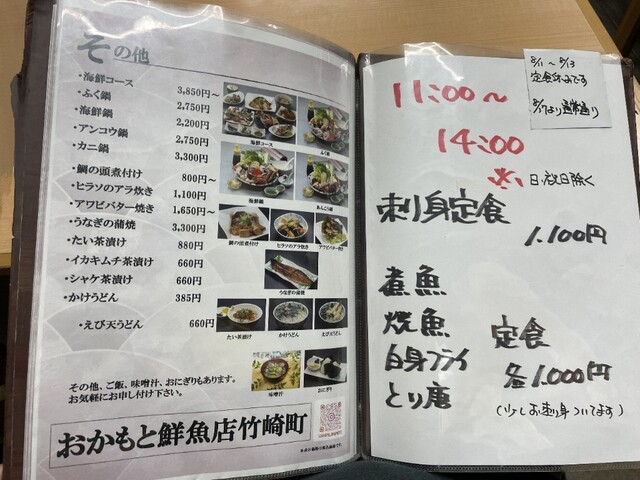 その他
・海鮮コース 3,850円～
・ふく鍋 2,750円
・海鮮鍋 2,200円
・アンコウ鍋 2,750円
・カニ鍋 3,300円
・鯛の頭煮付け 800円～
・ヒラソのアラ炊き 1,100円
・アワビバター焼き 1,650円～
・うなぎの蒲焼 3,300円
・たい茶漬け 880円
・イカキムチ茶漬け 660円
・シャケ茶漬け 660円
・かけうどん 385円
・えび天うどん 660円
海鮮コース
ふく鍋
海鮮鍋
あんこう鍋
鯛の頭煮付け
ヒラソのアラ炊き
アワビバター焼き
うなぎの蒲焼
たい茶漬け
かけうどん
えび天うどん
味噌汁
おにぎり
その他、ご飯、味噌汁、おにぎりもあります。
お気軽にお申し付け下さい。
おかもと鮮魚店竹崎町
11:00～
14:00
※日・祝日除く
刺身定食
1.100円
煮魚
焼魚
白身フライ
とり唐
定食
各1.000円
(少しお刺身ついてます)
定食休みです